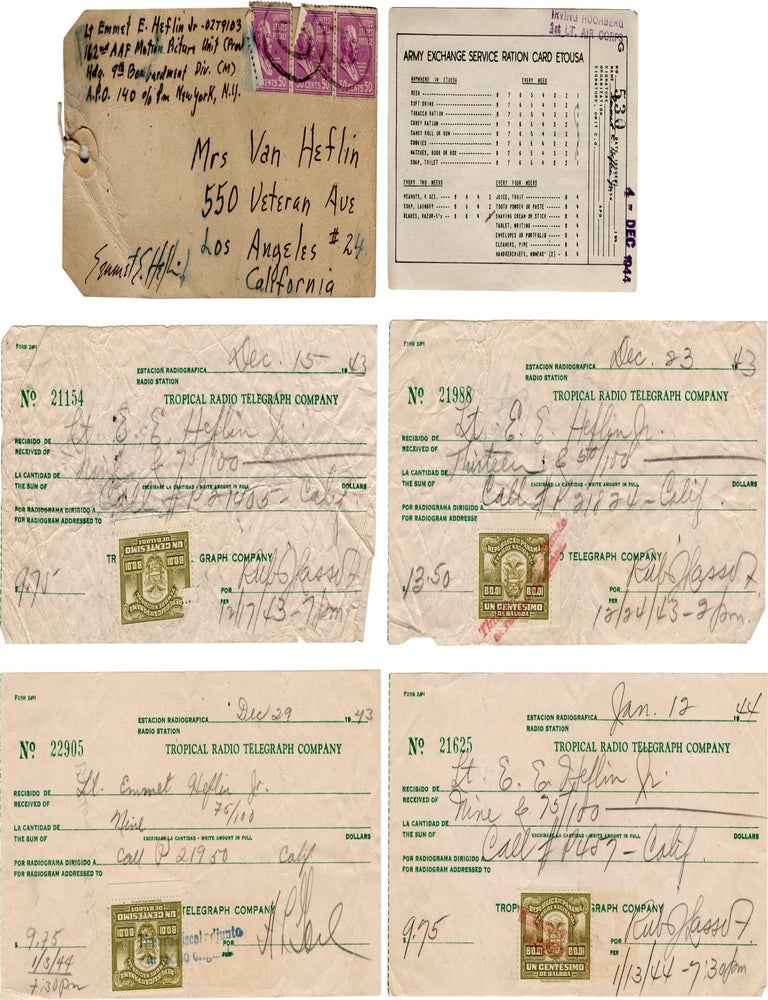 Lt Emmet E. Heflin Jr - 0279103
162nd AAF Motion Picture Unit (Prov)
Hdq. 9th Bombardment Div. (M)
A.P.O. 140 c/o P.m New York, N.Y.
UNITED STATES POSTAGE
CENTS 50
CENTS 50
50 CENTS 50
Mrs Van Heflin
550 Veteran Ave
Los Angeles #24
California
Emmet E. Heflin
IRVING HOCHBERG
1st LT. AIR CORPS
ARMY EXCHANGE SERVICE RATION CARD ETOUSA
ANYWHERE IN ETOUSA EVERY WEEK
BEER 8 7 6 5 4 3 2 1
SOFT DRINK 8 7 6 5 4 3 2 1
TOBACCO RATION 8 7 6 5 4 3 2 1
CANDY RATION 8 7 6 5 4 3 2 1
CANDY ROLL OR GUM 8 7 6 5 4 3 2 1
COOKIES 8 7 6 5 4 3 2 1
MATCHES, BOOK OR BOX 8 7 6 5 4 3 2 1
SOAP, TOILET 8 7 6 5 4 3 2 1
EVERY TWO WEEKS EVERY FOUR WEEKS
PEANUTS, 4 OZS. 8 6 4 2 JUICE, FRUIT 8 4
SOAP, LAUNDRY 8 6 4 2 TOOTH POWDER OR PASTE 8 4
BLADES, RAZOR-5's 8 6 4 2 SHAVING CREAM OR STICK 8 4
TABLET, WRITING 8 4
ENVELOPES OR PORTFOLIO 8 4
CLEANERS, PIPE 8 4
HANDKERCHIEFS, WOMENS' (2) 8 4
530
4 - DEC 1944
ESTACION RADIOGRAFICA Dec. 15 1943
RADIO STATION
Nº 21154 TROPICAL RADIO TELEGRAPH COMPANY
RECIBIDO DE Lt. E. E. Heflin Jr.
RECEIVED OF
LA CANTIDAD DE Nine & 75/100
THE SUM OF ESCRIBASE LA CANTIDAD - WRITE AMOUNT IN FULL DOLLARS
POR RADIOGRAMA DIRIGIDO A Call # P 21405 - Calif
FOR RADIOGRAM ADDRESSED TO
TR GRAPH COMPANY
UN CENTESIMO
DE BALBOA
B0.01 B0.01
$ 9.75 POR
PER
12/17/43 - 7 pm
ESTACION RADIOGRAFICA Dec. 23 1943
RADIO STATION
Nº 21988 TROPICAL RADIO TELEGRAPH COMPANY
RECIBIDO DE Lt. E. E. Heflin Jr.
RECEIVED OF
LA CANTIDAD DE Thirteen & 50/100
THE SUM OF ESCRIBASE LA CANTIDAD - WRITE AMOUNT IN FULL DOLLARS
POR RADIOGRAMA DIRIGIDO A Call # P 21824 - Calif.
FOR RADIOGRAM ADDRESSE
O TELEGRAPH COMPANY
B0.01 B0.01
UN CENTÉSIMO
DE BALBOA
$ 13.50 POR
PER
12/24/43 - 2 pm.
ESTACION RADIOGRAFICA Dec 29 1943
RADIO STATION
Nº 22905 TROPICAL RADIO TELEGRAPH COMPANY
RECIBIDO DE Lt. Emmet Heflin Jr.
RECEIVED OF
LA CANTIDAD DE Nine 75/100
THE SUM OF ESCRIBASE LA CANTIDAD - WRITE AMOUNT IN FULL DOLLARS
POR RADIOGRAMA DIRIGIDO A Call P 21950 Calif
FOR RADIOGRAM ADDRESSED TO
TELEGRAPH COMPANY
UN CENTESIMO
DE BALBOA
B0.01 B0.01
$ 9.75 POR
PER
1/3/44
7:30 pm
ESTACION RADIOGRAFICA Jan. 12 1944
RADIO STATION
Nº 21625 TROPICAL RADIO TELEGRAPH COMPANY
RECIBIDO DE Lt. E. E. Heflin Jr.
RECEIVED OF
LA CANTIDAD DE Nine & 75/100
THE SUM OF ESCRIBASE LA CANTIDAD - WRITE AMOUNT IN FULL DOLLARS
POR RADIOGRAMA DIRIGIDO A Call # P 487 - Calif.
FOR RADIOGRAM ADDRESSED TO
TROP GRAPH COMPANY
B0.01 B0.01
UN CENTÉSIMO
DE BALBOA
$ 9.75 POR
PER
1/13/44 - 7:30pm